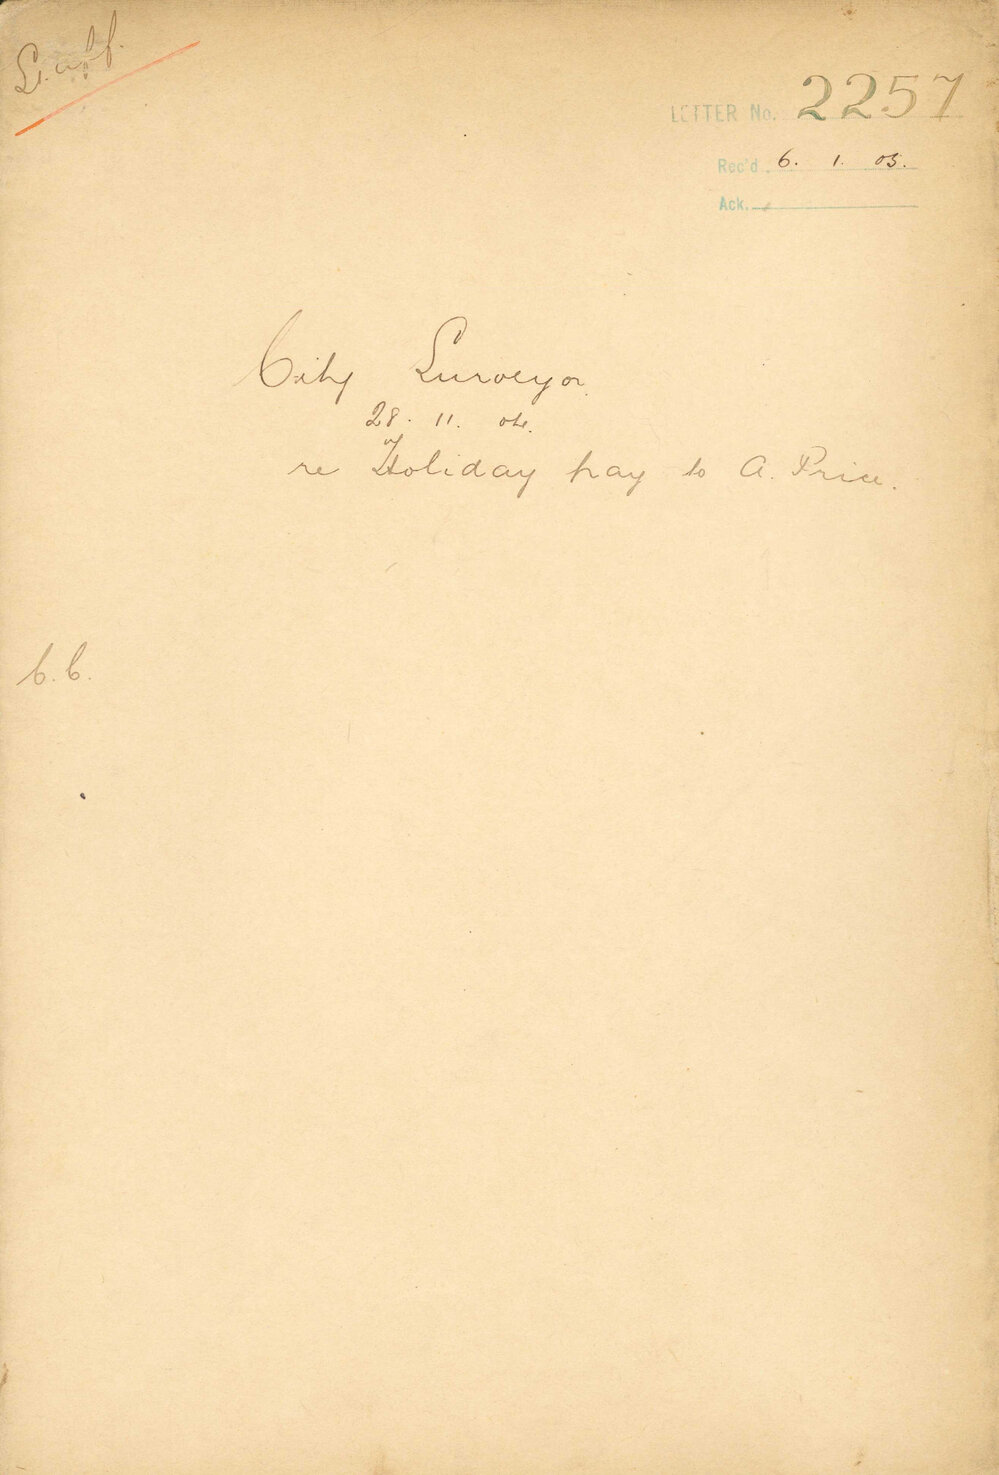 Staff.
LETTER No. 2257
Rec'd. 6. 1. 05.
Ack.
City Surveyor.
28. 11. 04.
re Holiday pay to A. Price.
C.C.